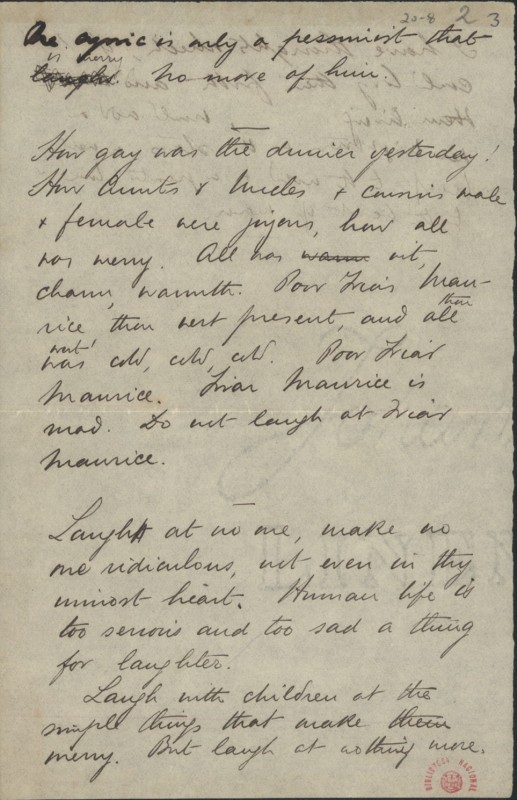 20-8 2 3
One cynic is only a pessimist that
is merry
laughs. No more of him.
How gay was the dinner yesterday!
How Aunts & Uncles & cousins male
& female were joyous, how all
was merry. All was warm wit,
charm, warmth. Poor Friar Mau-
rice thou wert present, and all
thou
was cold, cold, cold. Poor Friar
wert
Maurice. Friar Maurice is
mad. Do not laugh at Friar
Maurice.
Laugh at no one, make no
one ridiculous, not even in thy
inmost heart. Human life is
too serious and too sad a thing
for laughter.
Laugh with children at the
simple things that make them
merry. But laugh at nothing more.
BIBLIOTECA NACIONAL